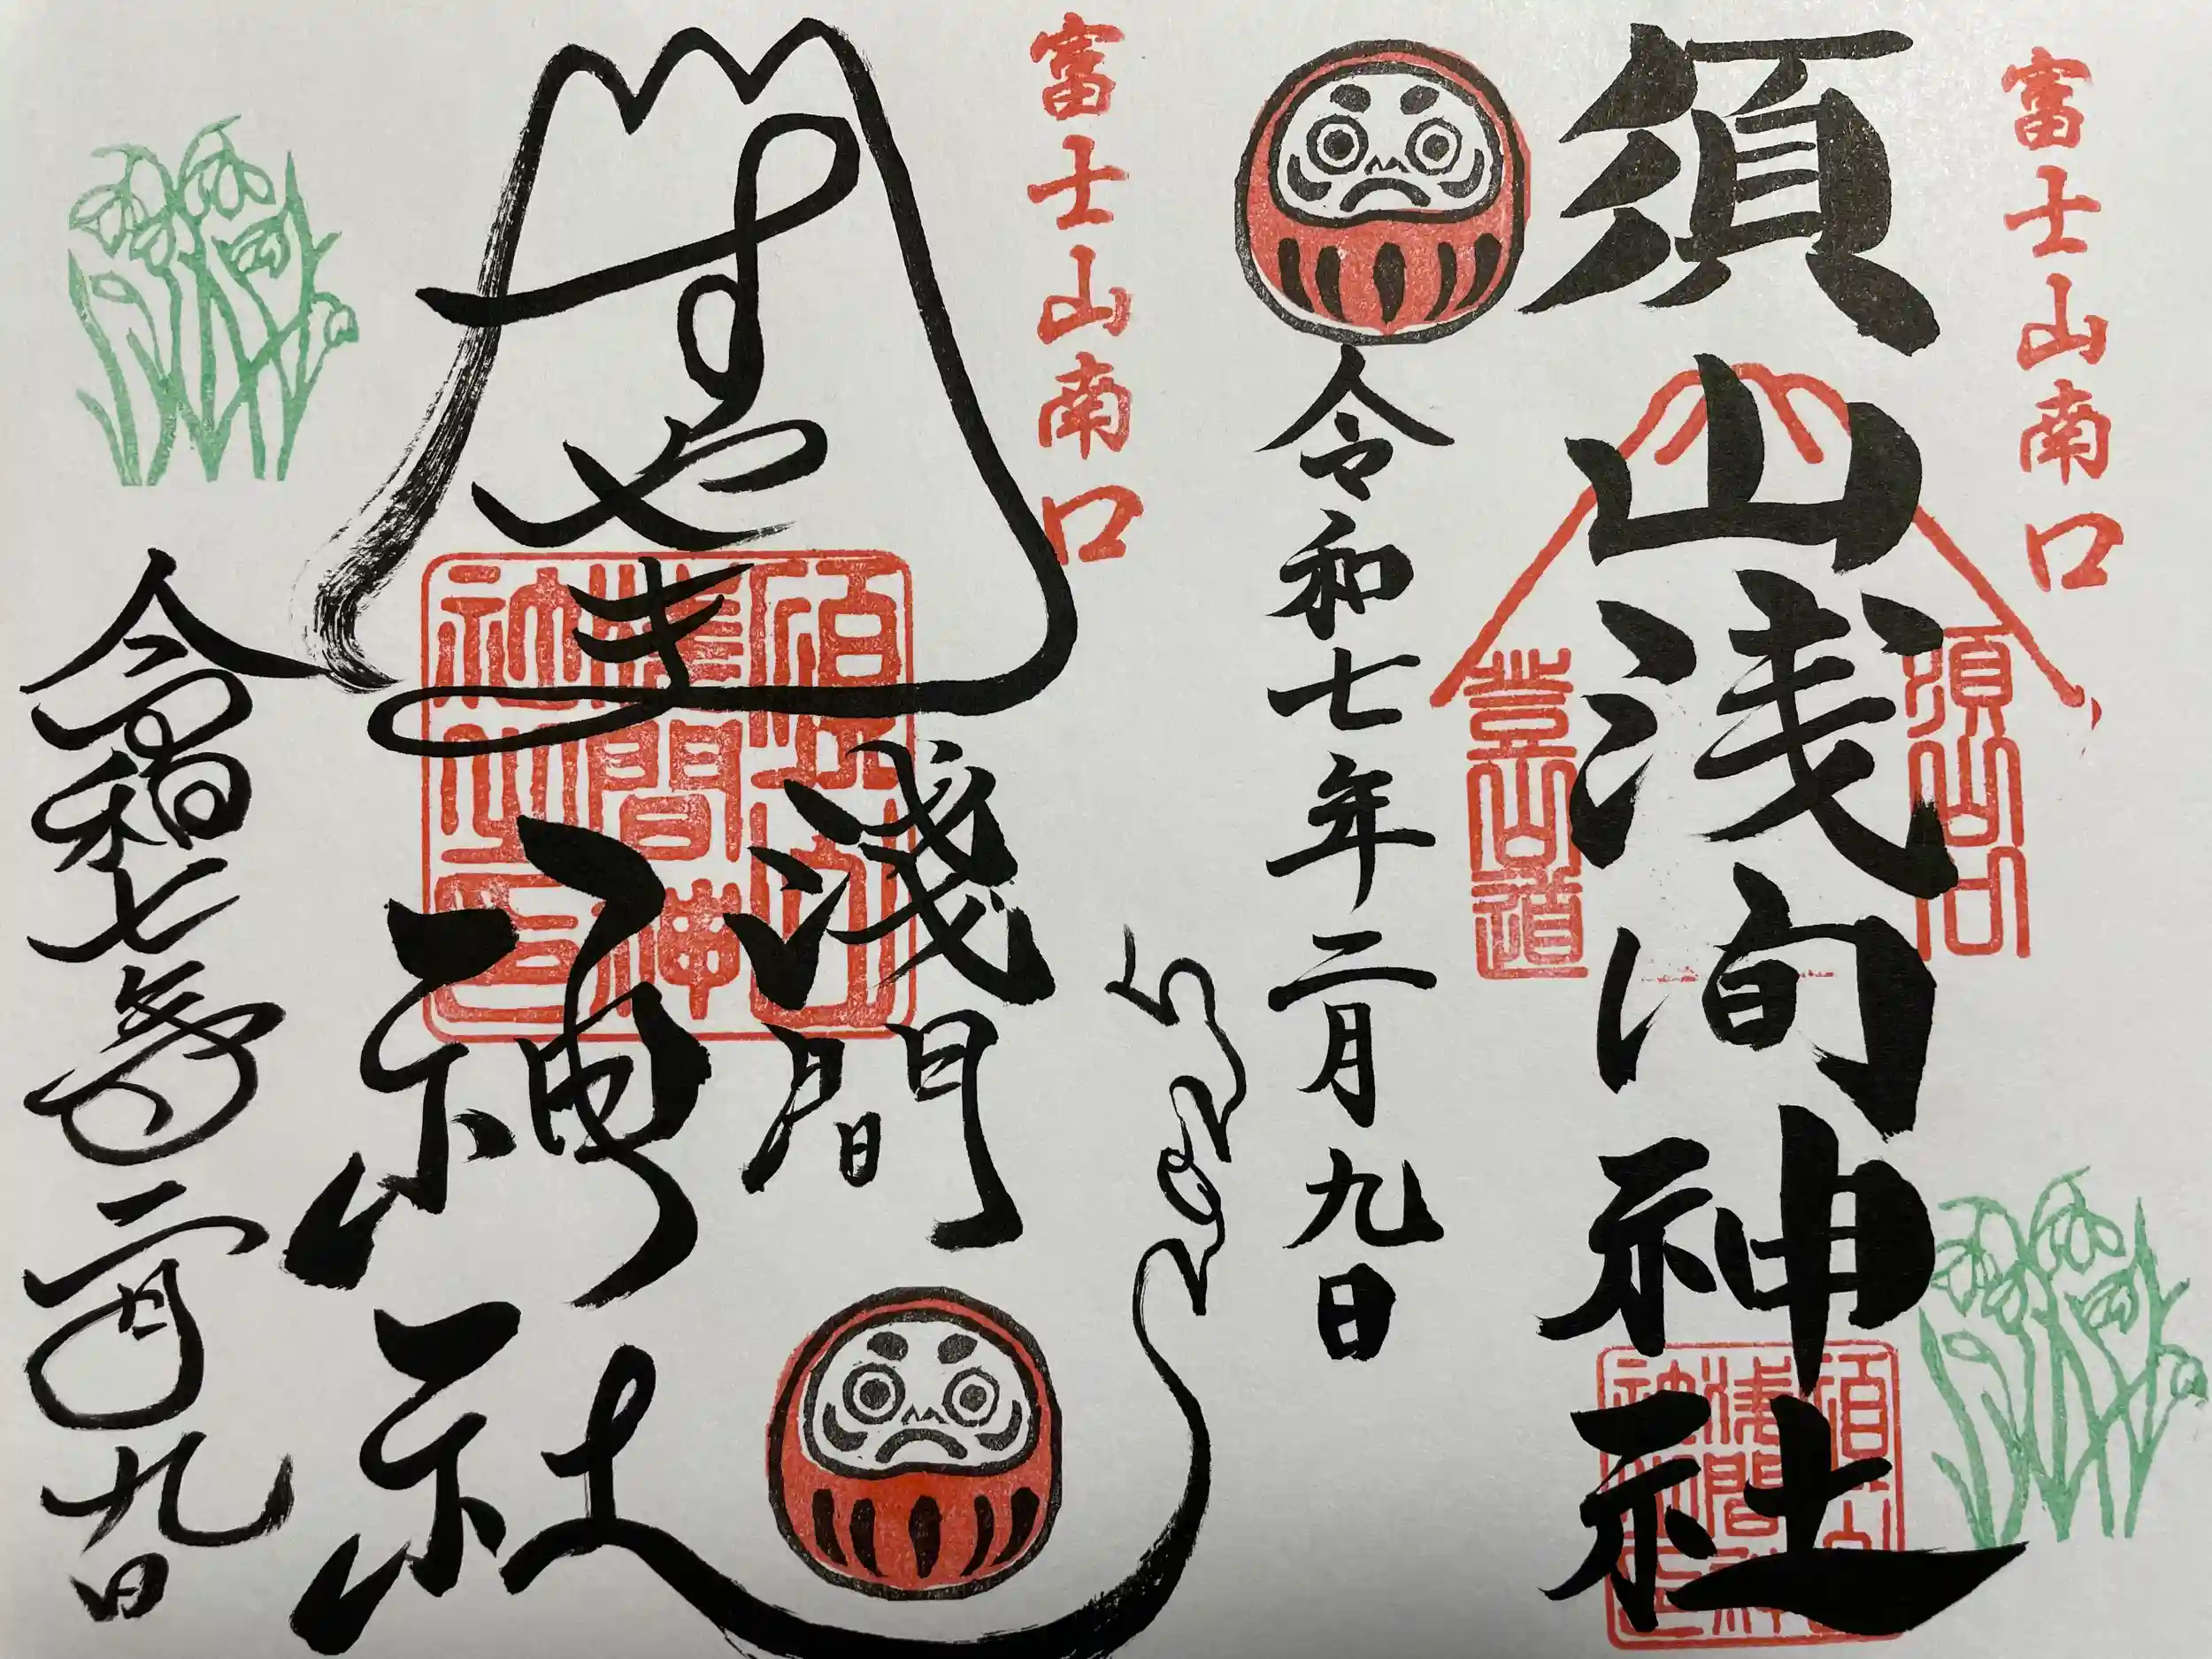 富士山南口
須山浅間神社
須山口
登山道
須山
淺間神
社之印
令和七年二月九日
富士山南口
すやま
淺間
神社
須山
淺間神
社之印
令和七年二月九日